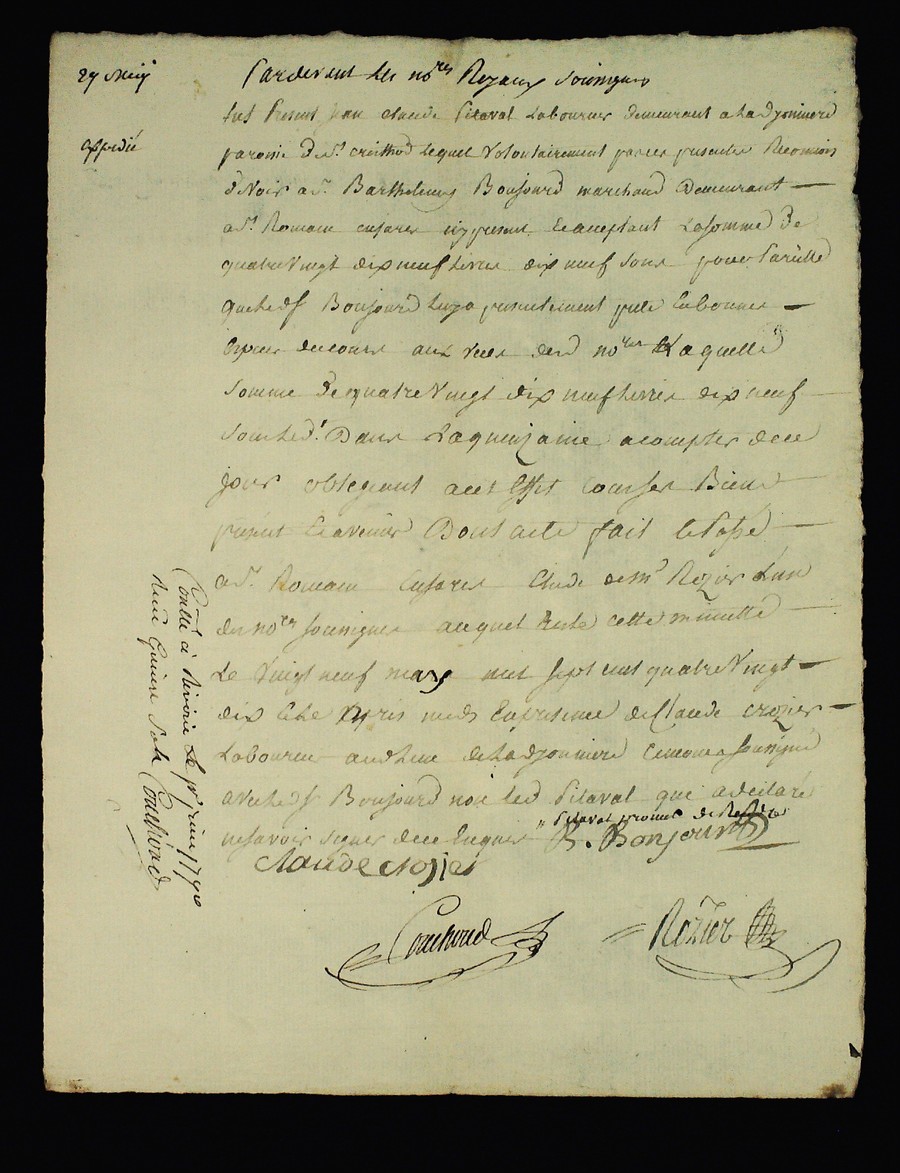 29 May
expedié
Pardevant les no.res Royaux soussignes
fut Present jean claude Pitaval Laboureur demeurant a Ladjonniere
paroisse de s.t lequel Volontairement par ces presentes Reconnois
devoir a s.r Barthelemy Boujourd marchand Demeurant
a s.t Romain en jarez icy present et acceptant La somme De
quatre Vingt dix neuf livres dix neuf sous pour Pareille
que led s.r Boujourd luy a presentement prete En bonnes
Especes de cours aux vues desd no.res Laquelle
somme De quatre Vingt dix neuf livres dix neuf
sous led. Dans La quinzaine a compter de ce
jour obligeant a cet effet tous ses Biens
present et avenir Dont acte fait et Passé
a s.t Romain En jarez Etude de m.e Rozier L'un
des no.res soussignes auquel Reste cette minutte
Le Vingt neuf mars mil sept cent quatre Vingt
dix apres midy En presence de Claude Crozier
Laboureur aud lieu de Ladjonniere temoin soussigné
avec led s.r Boujourd non led Pitaval qui a declaré
ne savoir signer de ce Enquis
Pitaval
B. Bonjour
claude crossier
Couchoud
Rozier
Contlé à Riverie Le p.r 1790
Reçu quinze sols Couchoud